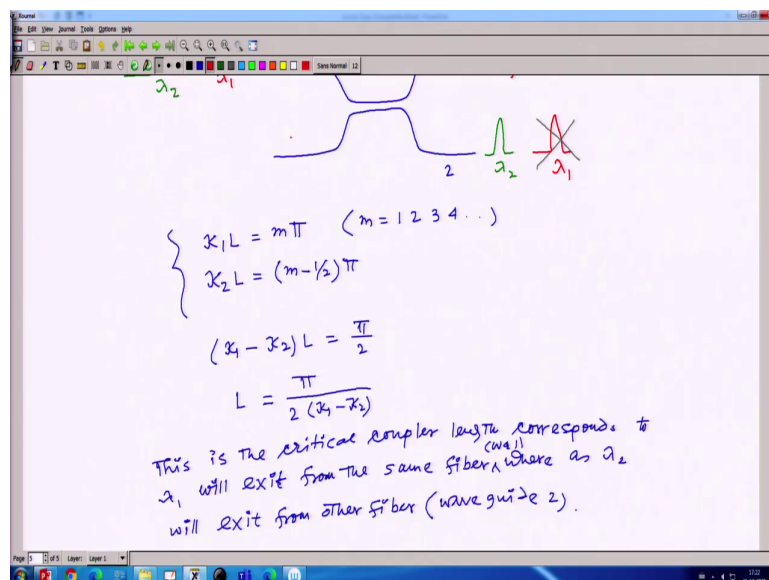 Xournal
File Edit View Journal Tools Options Help
Sans Normal 12
λ2 λ1
2 λ2 λ1
κ1L = mπ (m = 1 2 3 4 . . )
κ2L = (m-1/2)π
(κ1 - κ2) L = π/2
L = π / 2 (κ1 - κ2)
This is the critical coupler length corresponds to
λ1 will exit from the same fiber (WG1) where as λ2
will exit from other fiber (wave guide 2).
Page 5 of 5 Layer: Layer 1
17:22